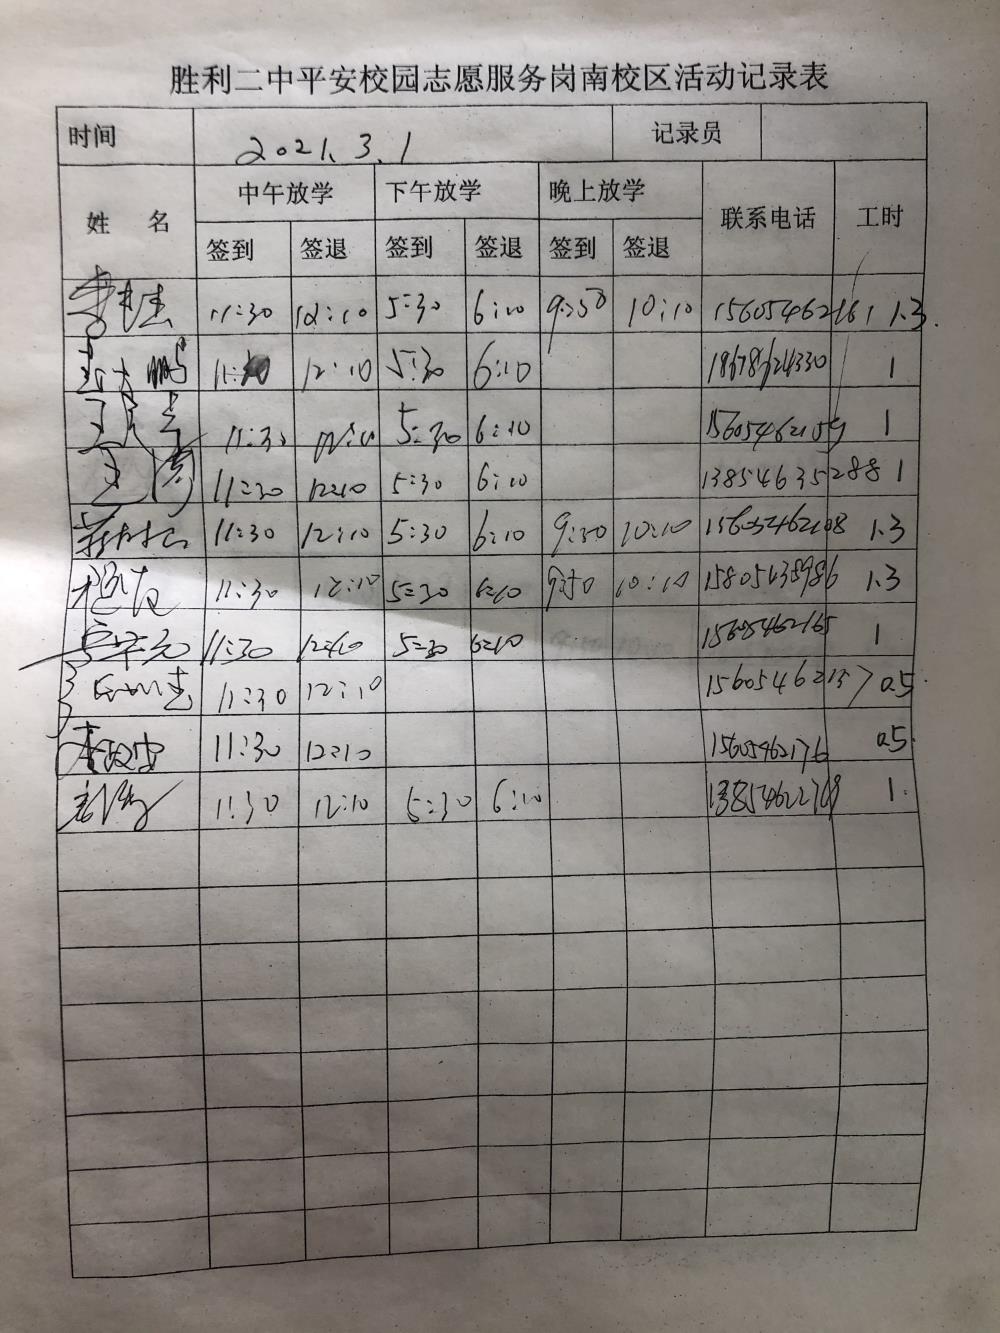 胜利二中平安校园志愿服务岗南校区活动记录表
时间 2021.3.1 记录员
姓 名 中午放学 下午放学 晚上放学 联系电话 工时
签到 签退 签到 签退 签到 签退
11:30 12:10 5:30 6:10 9:50 10:10 1.3
12:10 5:30 6:10 18678624330 1
11:30 12:10 5:30 6:10 15605462159 1
11:30 12:10 5:30 6:10 13854635288 1
11:30 12:10 5:30 6:10 9:50 10:10 15605462108 1.3
11:30 12:10 5:30 6:10 9:50 10:10 15805438986 1.3
11:30 12:10 5:30 6:10 15605462165 1
11:30 12:10 15605462137 0.5
11:30 12:10 15605462176 0.5
11:30 12:10 5:30 6:10 1